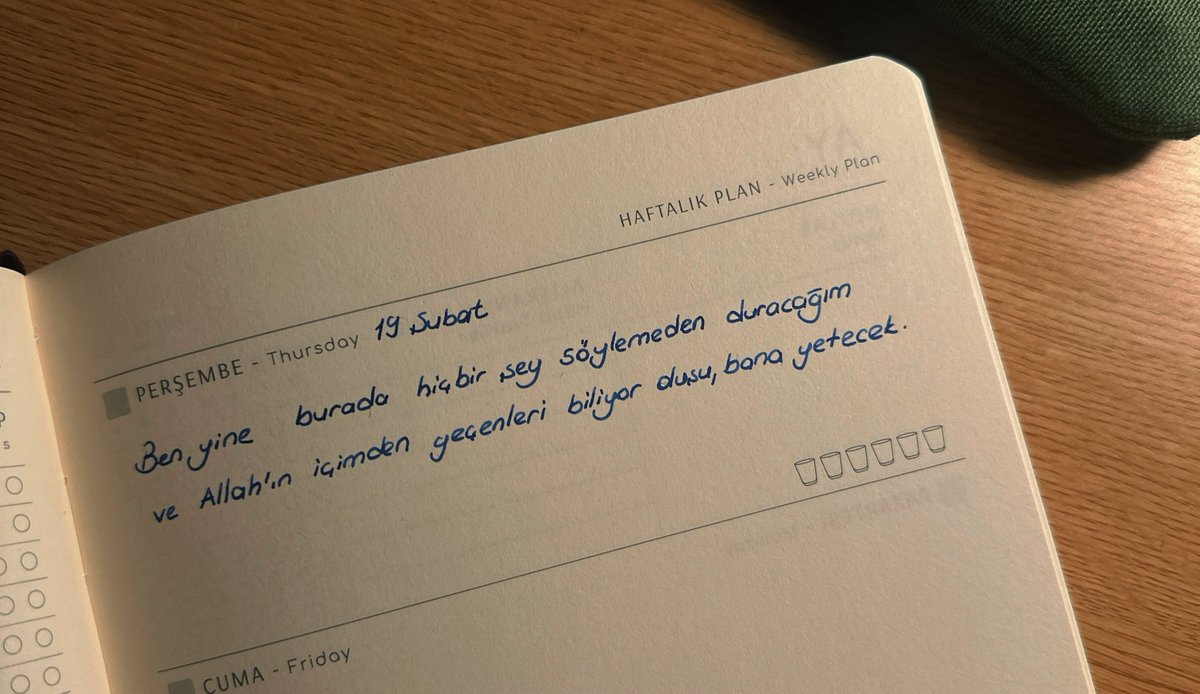 HAFTALIK PLAN - Weekly Plan
PERŞEMBE - Thursday 19 Şubat
Ben yine burada hiçbir şey söylemeden duracağım
ve Allah'ın içimden geçenleri biliyor oluşu, bana yetecek.
CUMA - Friday